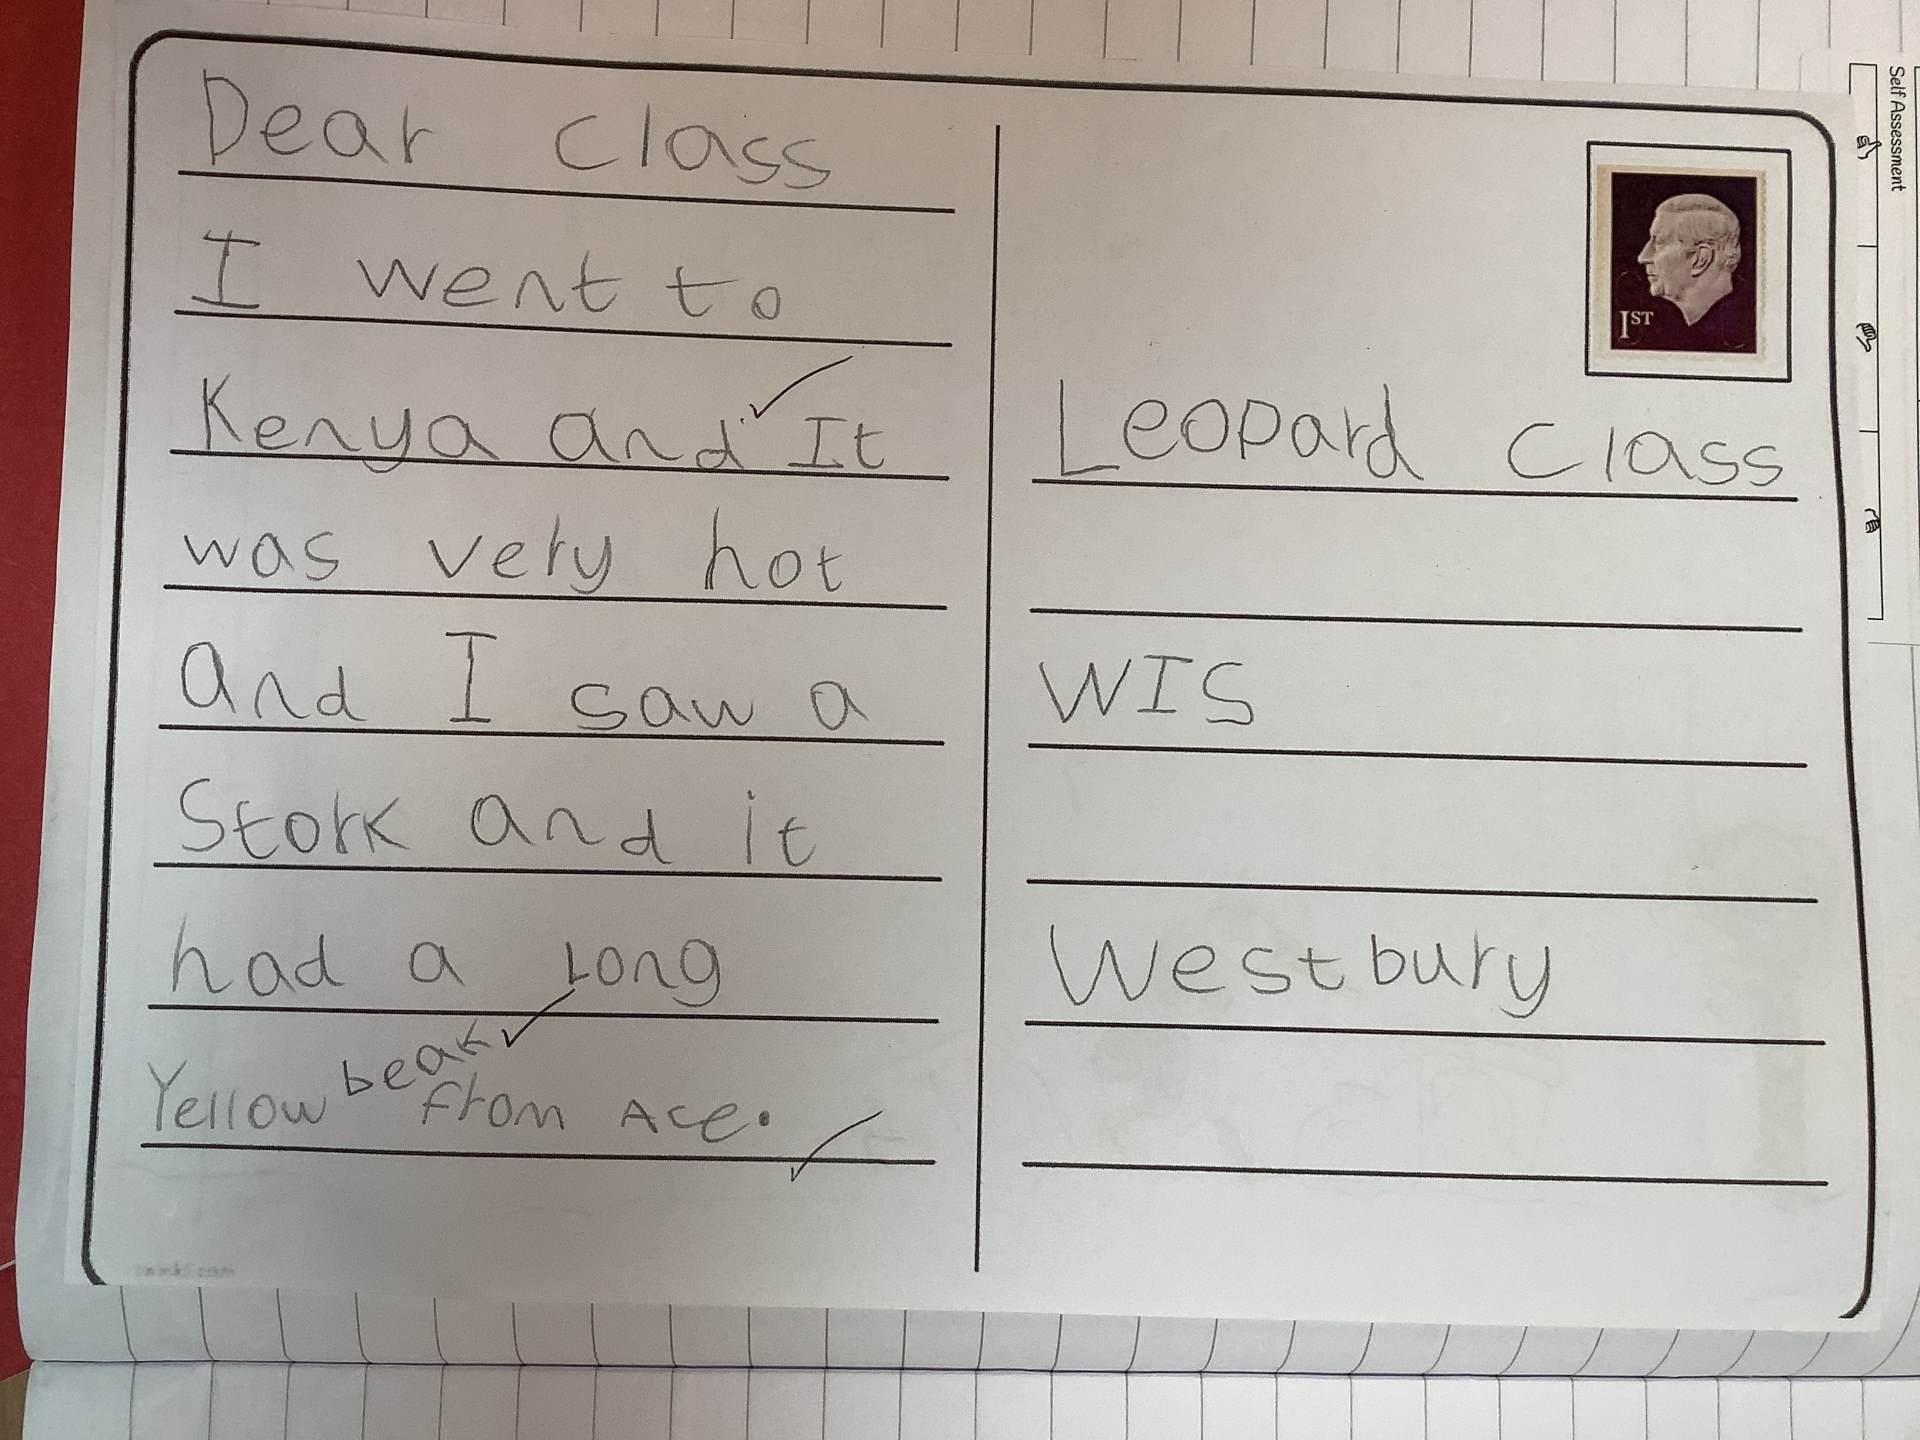 Dear class
I went to
Kenya and It
was very hot
and I saw a
Stork and it
had a Long
Yellow beak from Ace.
1ST
Leopard class
WIS
Westbury
Self Assessment